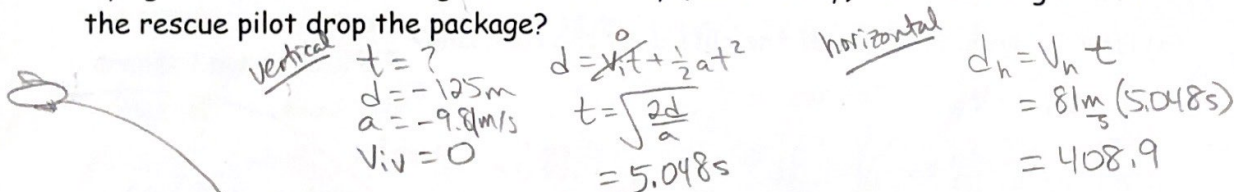 the rescue pilot drop the package?
vertical
t = ?
d = -125m
a = -9.81m/s
Viv = 0
d = V₁t + ½at² 0
t = √(2d/a)
= 5.048s
horizontal
dₕ = Vₕ t
= 81m/s (5.048s)
= 408.9